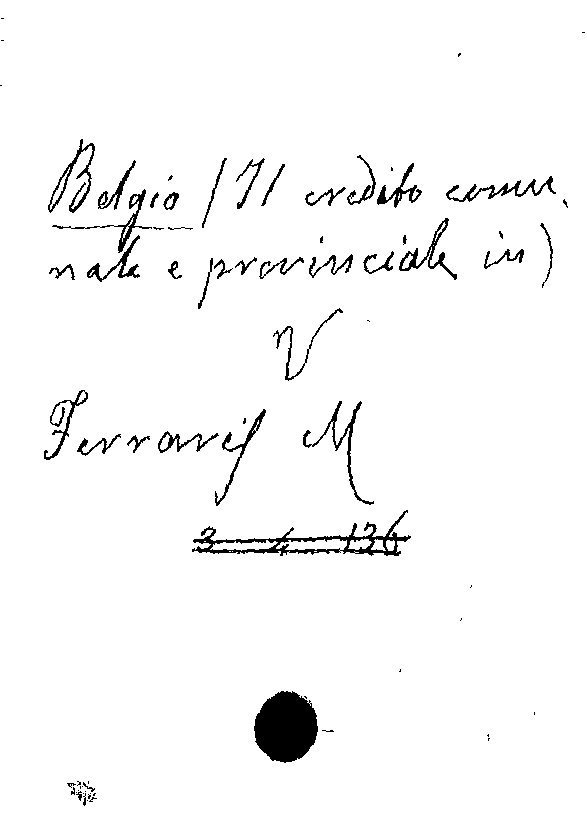 Belgio (Il credito comu-
nale e provinciale in)
V
Ferraris M
3 4 136